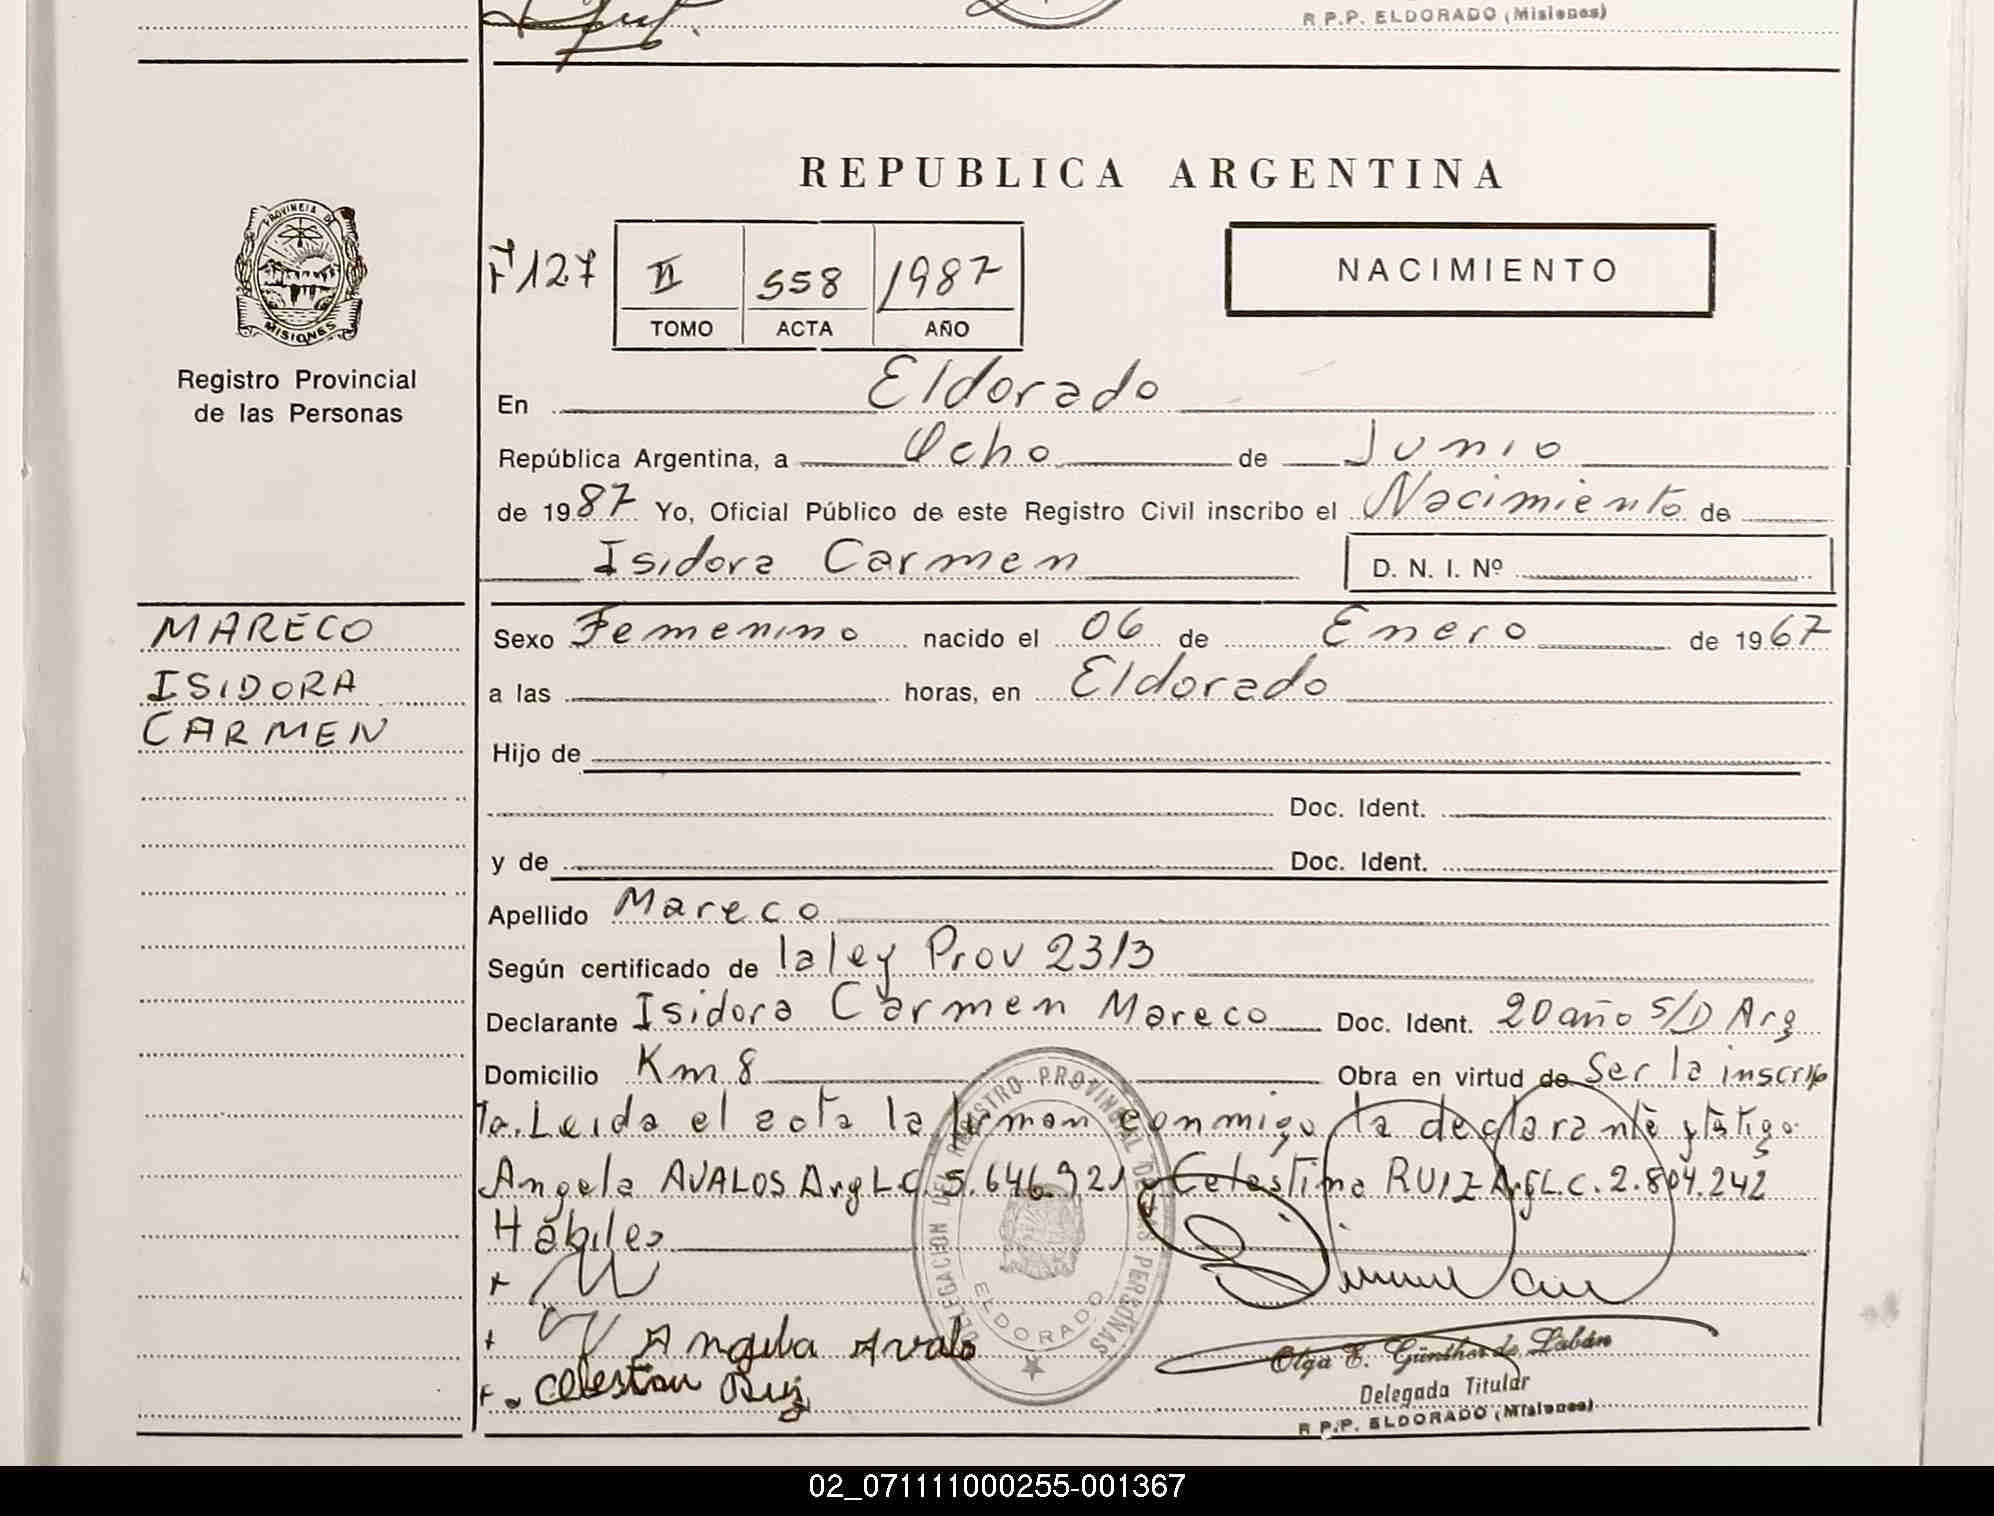 R P.P. ELDORADO (Misiones)
REPUBLICA ARGENTINA
PROVINCIA DE
MISIONES
Registro Provincial
de las Personas
Fº 127
II
558
1987
TOMO
ACTA
AÑO
NACIMIENTO
En Eldorado
República Argentina, a Ocho de Junio
de 1987 Yo, Oficial Público de este Registro Civil inscribo el Nacimiento de
Isidora Carmen
D. N. I. Nº
MARECO
ISIDORA
CARMEN
Sexo Femenino nacido el 06 de Enero de 1967
a las horas, en Eldorado
Hijo de
Doc. Ident.
y de Doc. Ident.
Apellido Mareco
Según certificado de la ley Prov 2313
Declarante Isidora Carmen Mareco Doc. Ident. 20 año S/D Arg
Domicilio Km 8 Obra en virtud de Ser la inscrip
ta. Leida el acta la firman conmigo la declarante y tstigos
Angela AVALOS Arg L.C. 5.646.921 Celestina RUIZ Arg L.C. 2.804.242
Hábiles
Angela Avalo
Celestian Ruiz
DELEGACION DEL REGISTRO PROVINCIAL DE LAS PERSONAS
ELDORADO
Olga E. Günther de Labán
Delegada Titular
R P.P. ELDORADO (Misiones)
02_071111000255-001367